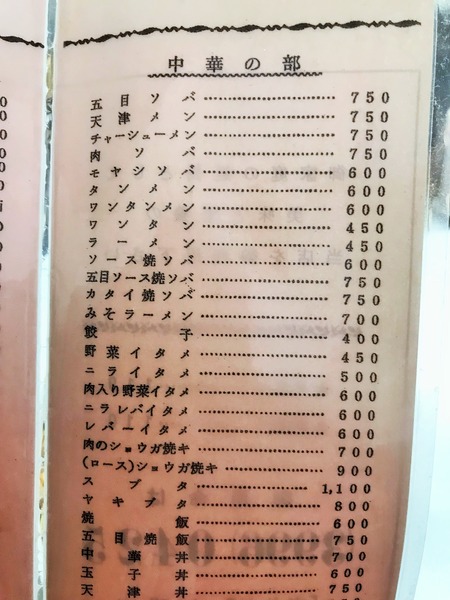 中華の部
五目ソバ…………750
天津メン…………750
チャーシューメン…………750
肉ソバ…………750
モヤシソバ…………600
タンメン…………600
ワンタンメン…………600
ワンタン…………450
ラーメン…………450
ソース焼ソバ…………600
五目ソース焼ソバ…………750
カタイ焼ソバ…………750
みそラーメン…………700
餃子…………400
野菜イタメ…………450
ニライタメ…………500
肉入り野菜イタメ…………600
ニラレバイタメ…………600
レバーイタメ…………600
肉のショウガ焼キ…………700
(ロース)ショウガ焼キ…………900
スブタ…………1,100
ヤキブタ…………800
焼飯…………600
五目焼飯…………750
中華丼…………700
玉子丼…………600
天津丼…………750